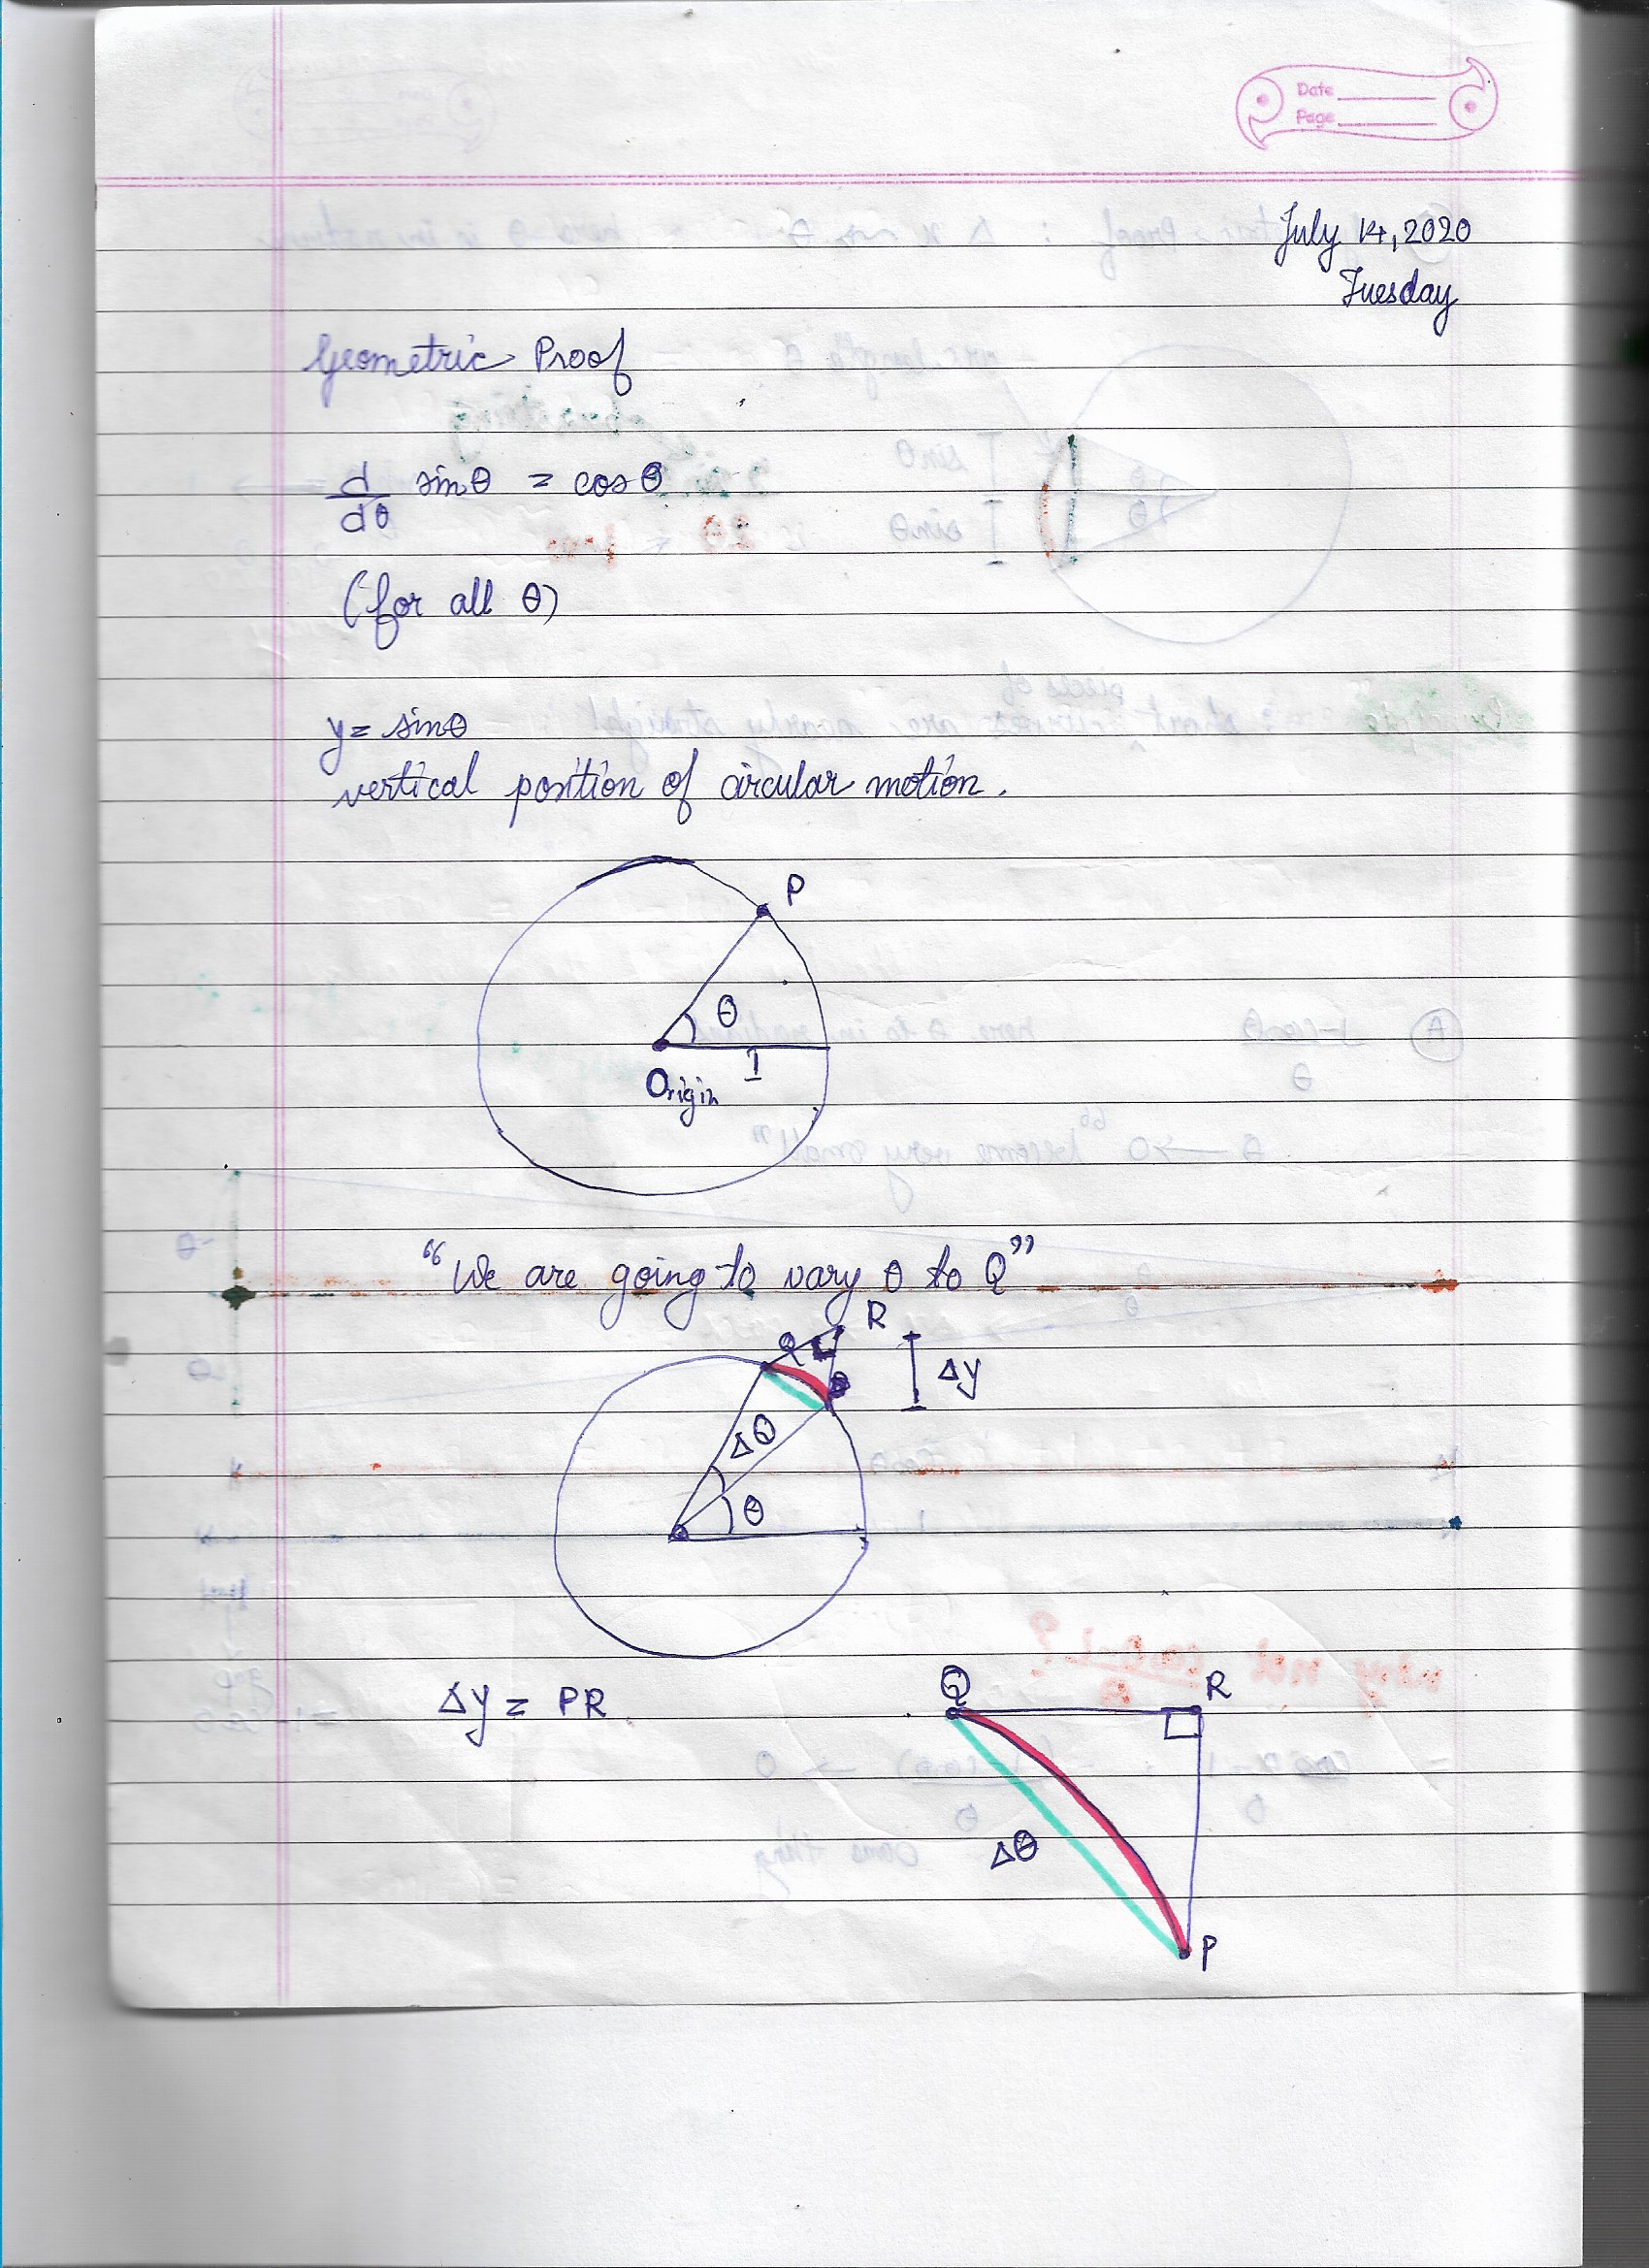 Date
Page
July 14, 2020
Tuesday
Geometric Proof
d/dθ sinθ = cosθ
(for all θ)
y = sinθ
vertical position of circular motion.
P
θ
1
Origin
"We are going to vary θ to Q"
R
Q
P
Δy
Δθ
θ
Δy = PR
Q
R
Δθ
P